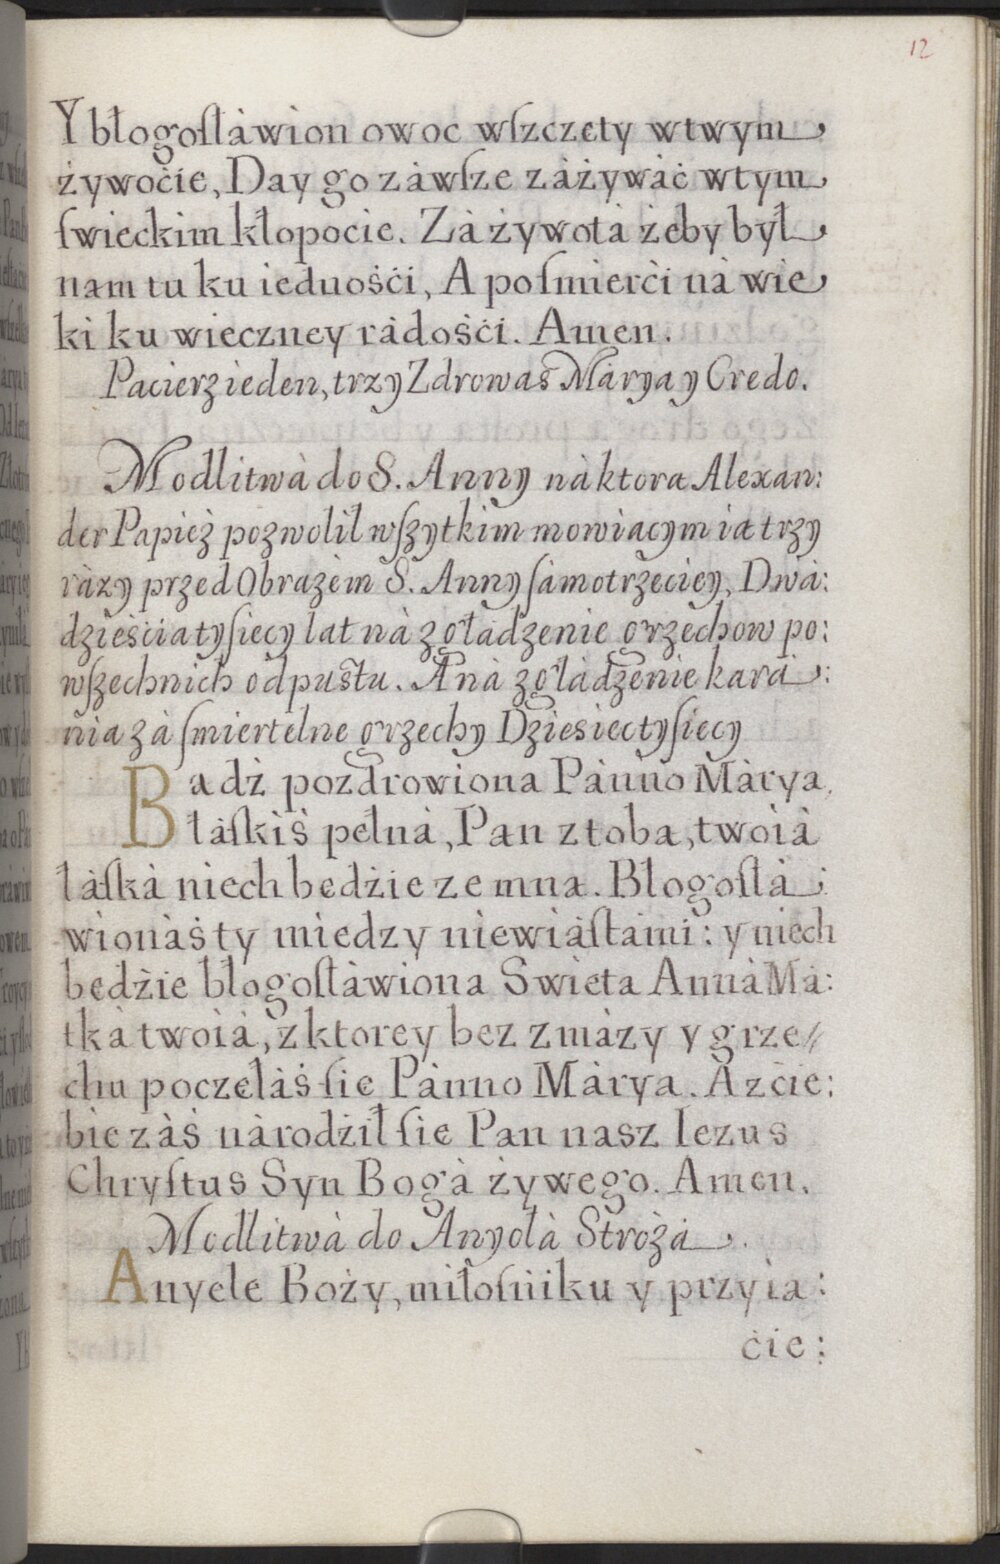 12
Y błogoſłàwion owoc wſzczety wtwym
żywoċie, Day go zàwſze zàżywàċ wtym
ſwieckim kłopocie. Zà żywotà żeby był
nam tu ku iednoṡċi, A po ſmierċi nà wie
ki ku wieczney ràdoṡċi. Amen.
Pacierz ieden, trzy Zdrowaṡ Màrya y Credo.
Modlitwà do S. Anny nà ktora Alexan:
der Papież pozwolił wſzytkim mowiacym ia trzy
ràzy przed Obrazem S. Anny ſàmotrzeciey, Dwà:
dzieṡcia tyſiecy lat nà zgładzenie grzechow po:
wſzechnich odpuſtu. A nà zgładzenie kara:
nia zà ſmiertelne grzechy Dziesiectyſiecy
Badż pozdrowiona Pànno Màrya
łàſkiṡ pełnà, Pan z toba, twoià
łàſkà niech bedżie ze mna. Błogoſłà:
wionàṡ ty miedzy niewiàſtàmi: y niech
bedżie błogoſłàwiona Swieta Annà Mà:
tkà twoià, z ktorey bez zmàzy y grze//
chu poczełàṡ ſie Pànno Màrya. A z ċie:
bie zàṡ nàrodżił ſie Pan nasz Iezus
Chryſtus Syn Bogà żywego. Amen.
Modlitwà do Anyołà Stróżà.
Anyele Boży, miłoſniku y przyia:
ċie: